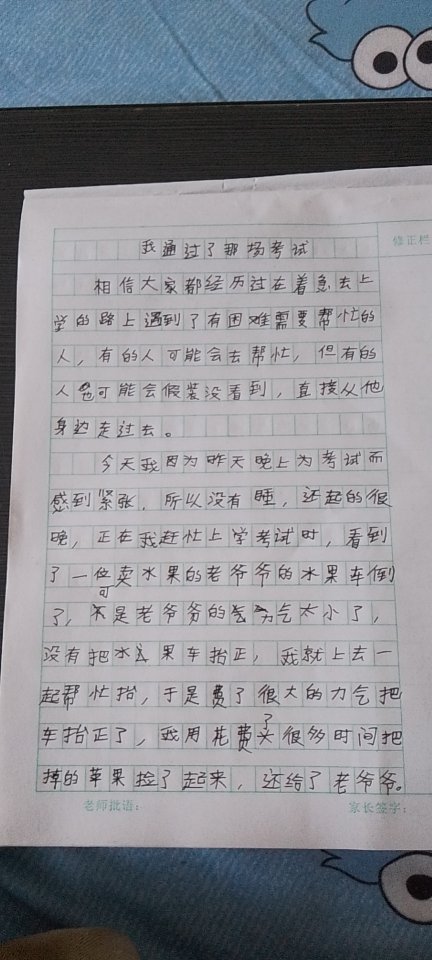 修正栏
我通过了那场考试
相信大家都经历过在着急去上
学的路上遇到了有困难需要帮忙的
人，有的人可能会去帮忙，但有的
人可能会假装没看到，直接从他
身边走过去。
今天我因为昨天晚上为考试而
感到紧张，所以没有睡，还起的很
晚，正在我赶忙上学考试时，看到
了一位卖水果的老爷爷的水果车倒
了，可是老爷爷的力气太小了，
没有把水果车抬正，我就上去一
起帮忙抬，于是费了很大的力气把
车抬正了，我用花费了很多时间把
掉的苹果捡了起来，还给了老爷爷。
老师批语：
家长签字：